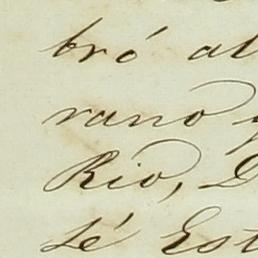 bró al
rano y
Rio, D
sé Est